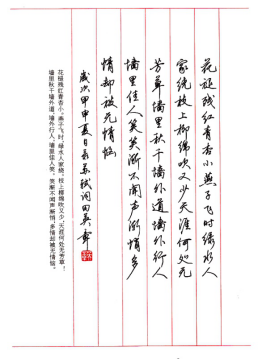 花褪残红青杏小燕子飞时绿水人
家绕枝上柳绵吹又少天涯何处无
芳草墙里秋千墙外道墙外行人
墙里佳人笑笑渐不闻声渐悄多
情却被无情恼
岁次甲申夏日录苏轼词田英章
花褪残红青杏小。燕子飞时,绿水人家绕。枝上柳绵吹又少,天涯何处无芳草!
墙里秋千墙外道。墙外行人,墙里佳人笑。笑渐不闻声渐悄,多情却被无情恼。